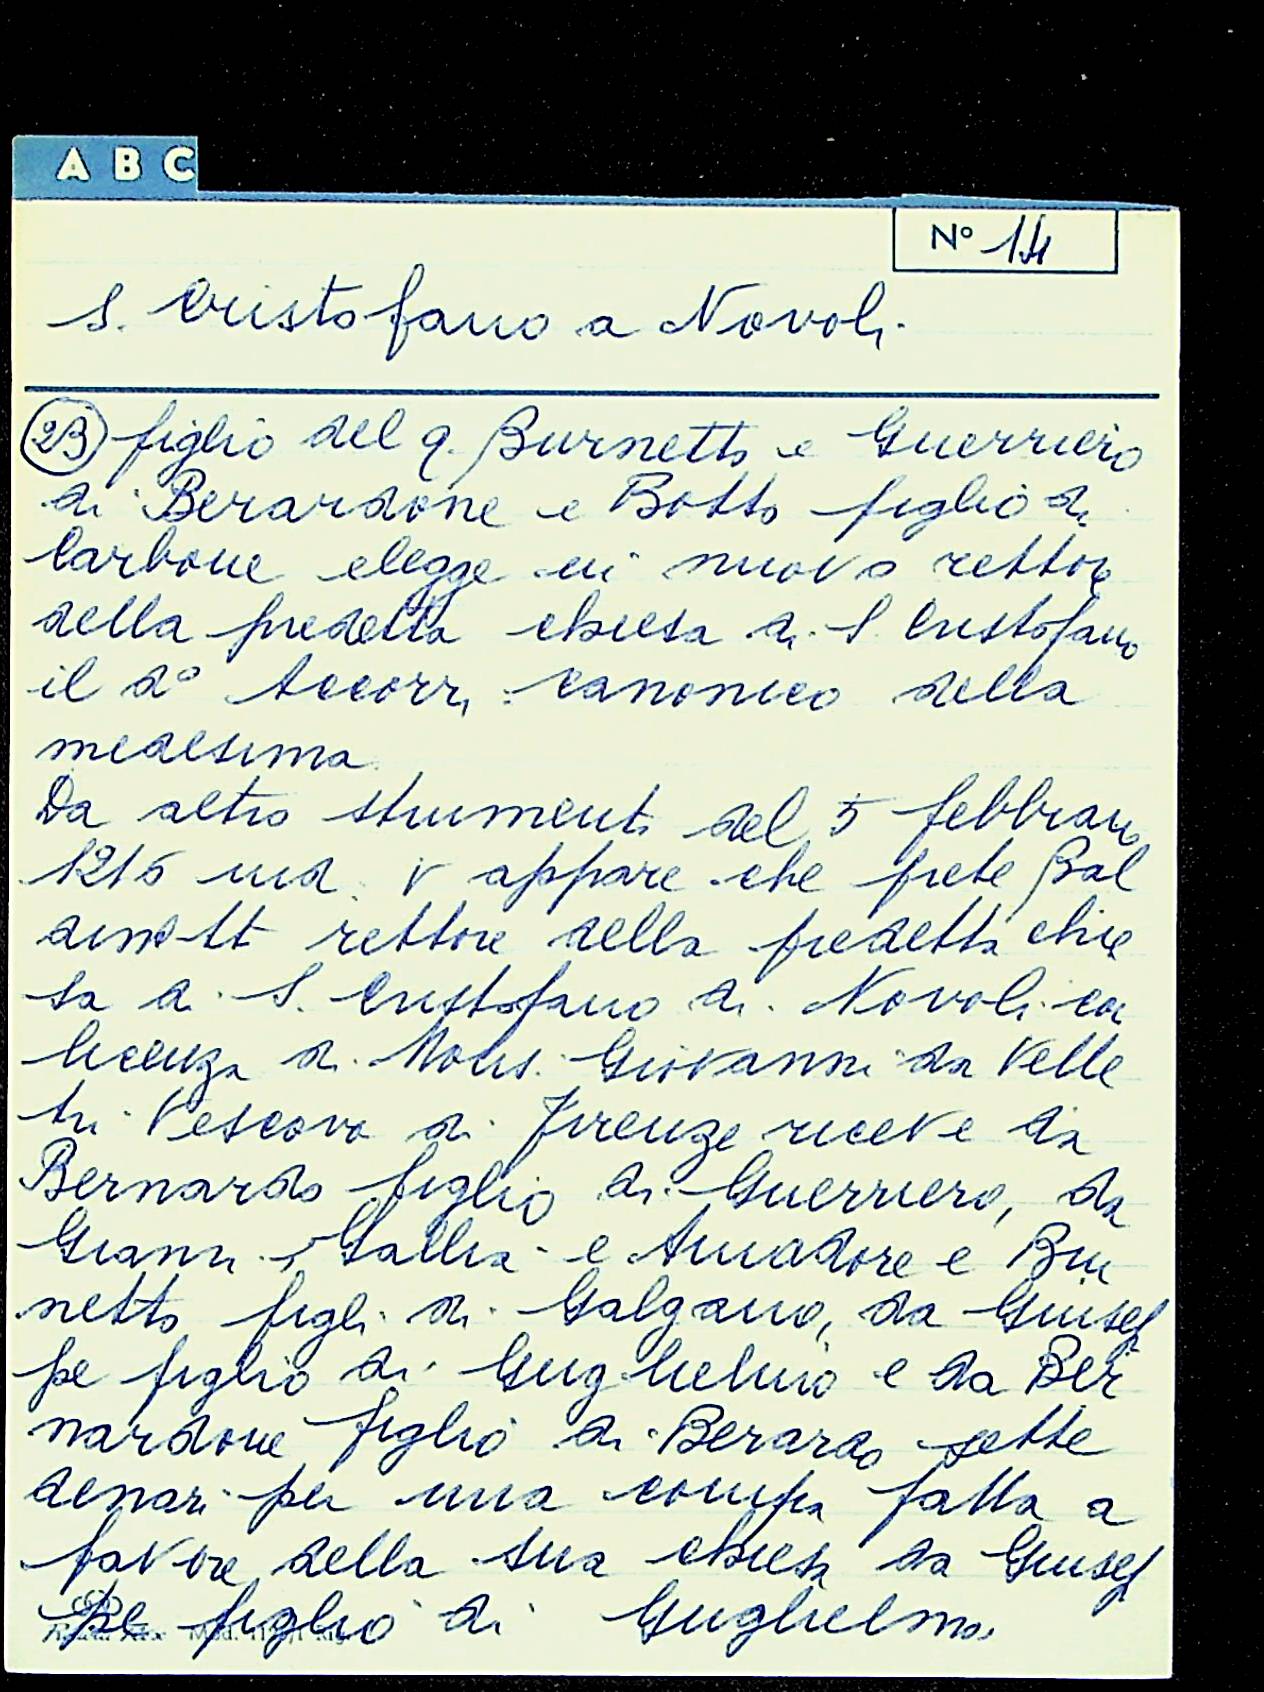 A B C
N° 14
S. Cristofano a Novoli.
23 figlio del q. Burnetto e Guerriero
di Berardone e Botto figlio di
Carbone elegge in nuovo rettore
della predetta chiesa di S. Cristofano
il d° Accorri canonico della
medesima.
Da altro strumento del 5 febbraio
1216 ind. V appare che prete Bal
dinotto rettore della predetta chie
sa di S. Cristofano di Novoli con
licenza di Mons. Giovanni da Velle
tri Vescovo di Firenze riceve da
Bernardo figlio di Guerriero, da
Gianni Gallia e Amadore e Bru
netto figli di Galgano, da Giusep
pe figlio di Guglielmo e da Ber
nardone figlio di Berardo sette
denari per una compra fatta a
favore della sua chiesa da Giusep
pe figlio di Guglielmo